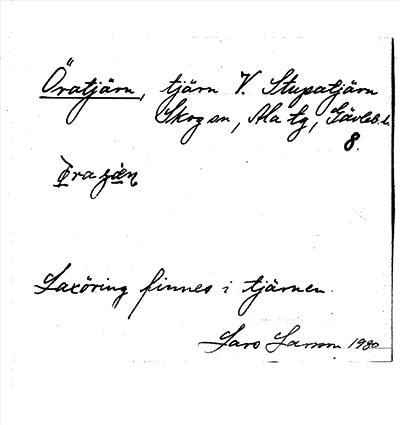 Öratjärn, tjärn V. Stupatjärn
Skog sn, Ala tg, Gävleb. l.
8.
Laxöring finnes i tjärnen.
Lars Larsson 1980